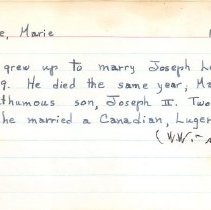 e, Marie
grew up to marry Joseph L
9. He died the same year, Ma
thumous son, Joseph II. Two
he married a Canadian, Luger
(W.W.-